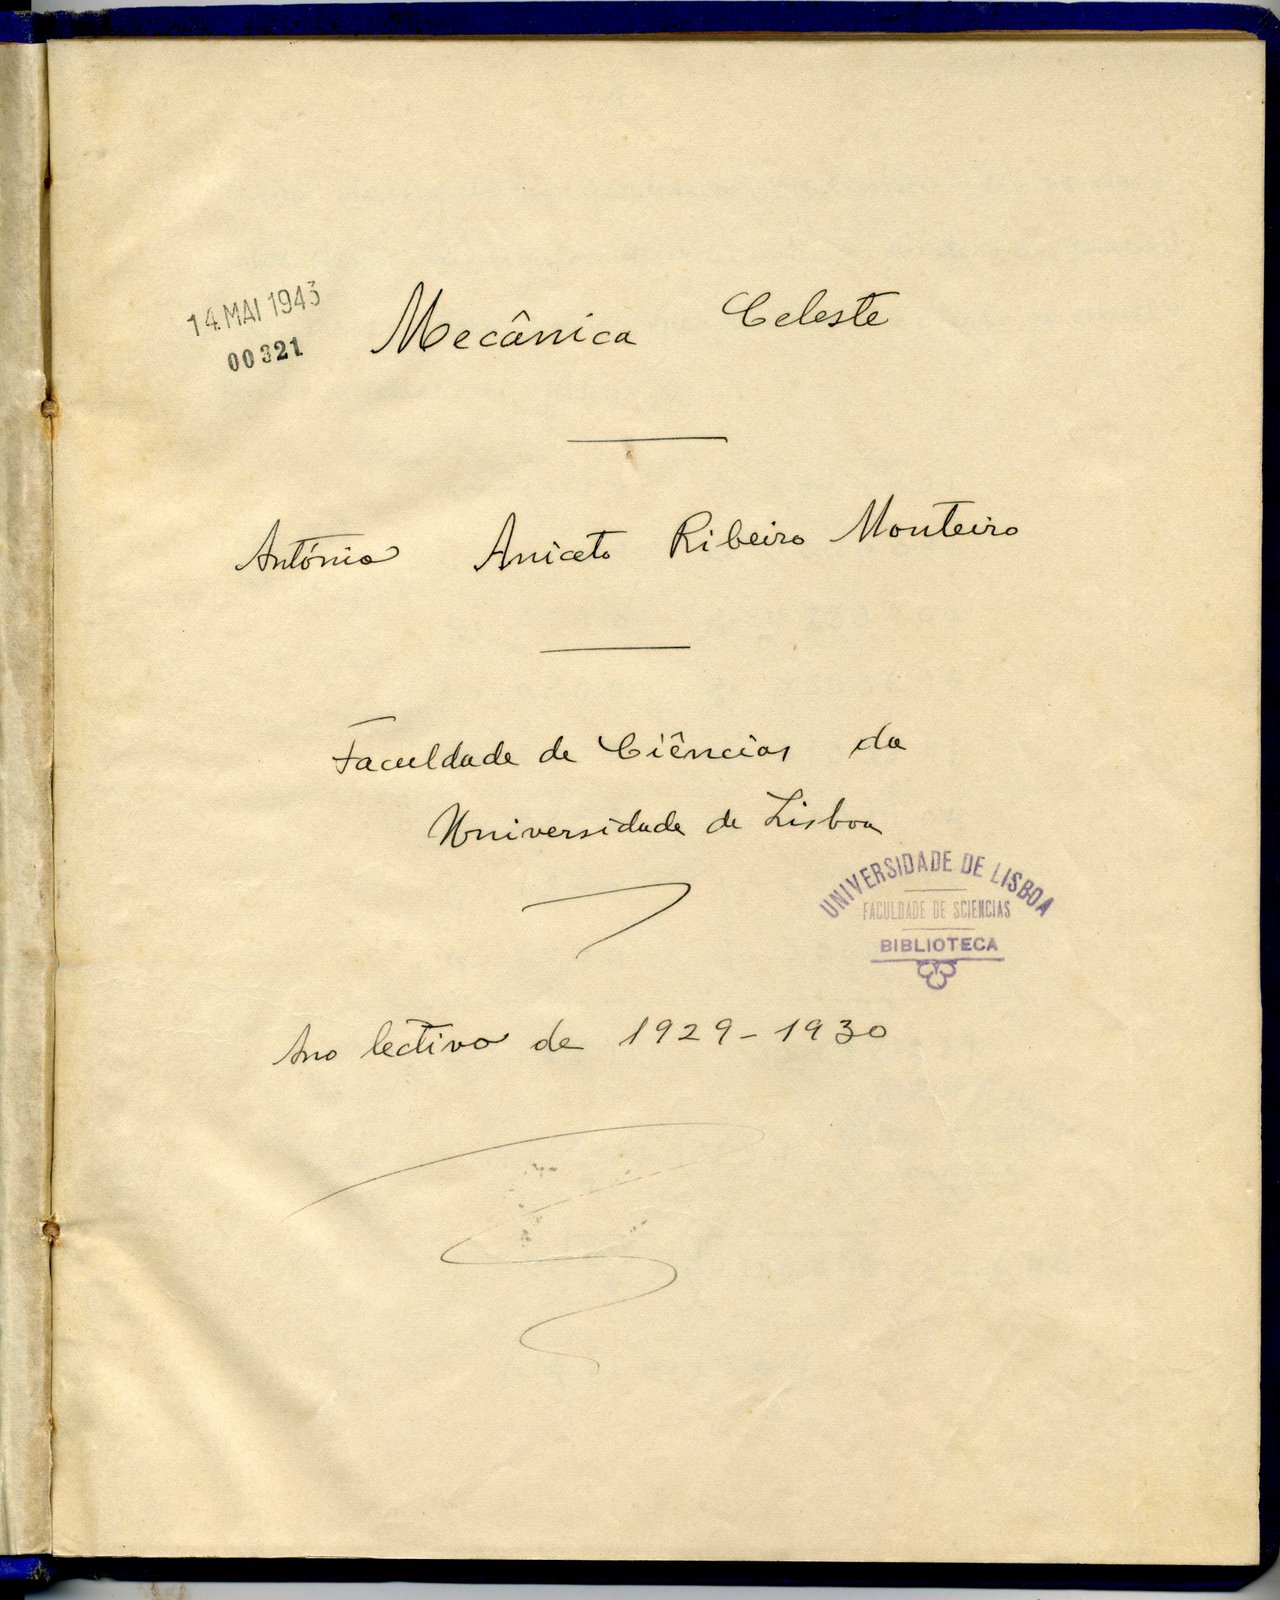 14. MAI 1943
00321
Mecânica Celeste
António Aniceto Ribeiro Monteiro
Faculdade de Ciências da
Universidade de Lisboa
UNIVERSIDADE DE LISBOA
FACULDADE DE SCIENCIAS
BIBLIOTECA
Ano lectivo de 1929-1930